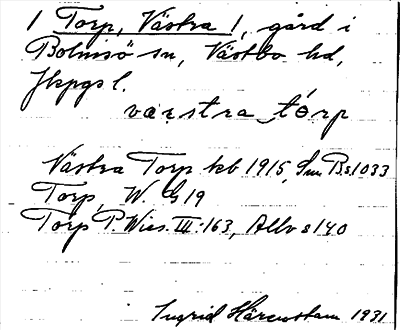 1 Torp, Västra 1, gård i
Bolmsö sn, Västbo hd,
Jkpgs l.
va̤stra tórp
Västra Torp kb 1915, Sm Bs1033
Torp, W. G 19
Torp P. Wies. III:163, Allv s 140
Ingrid Härenstam 1931